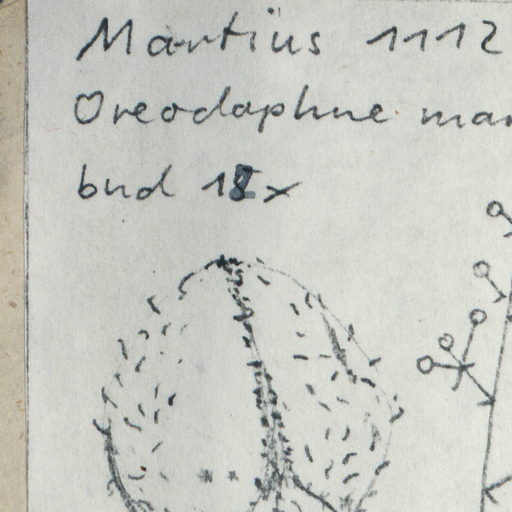 Martius 1112
Oreodaphne mar
bud 12x